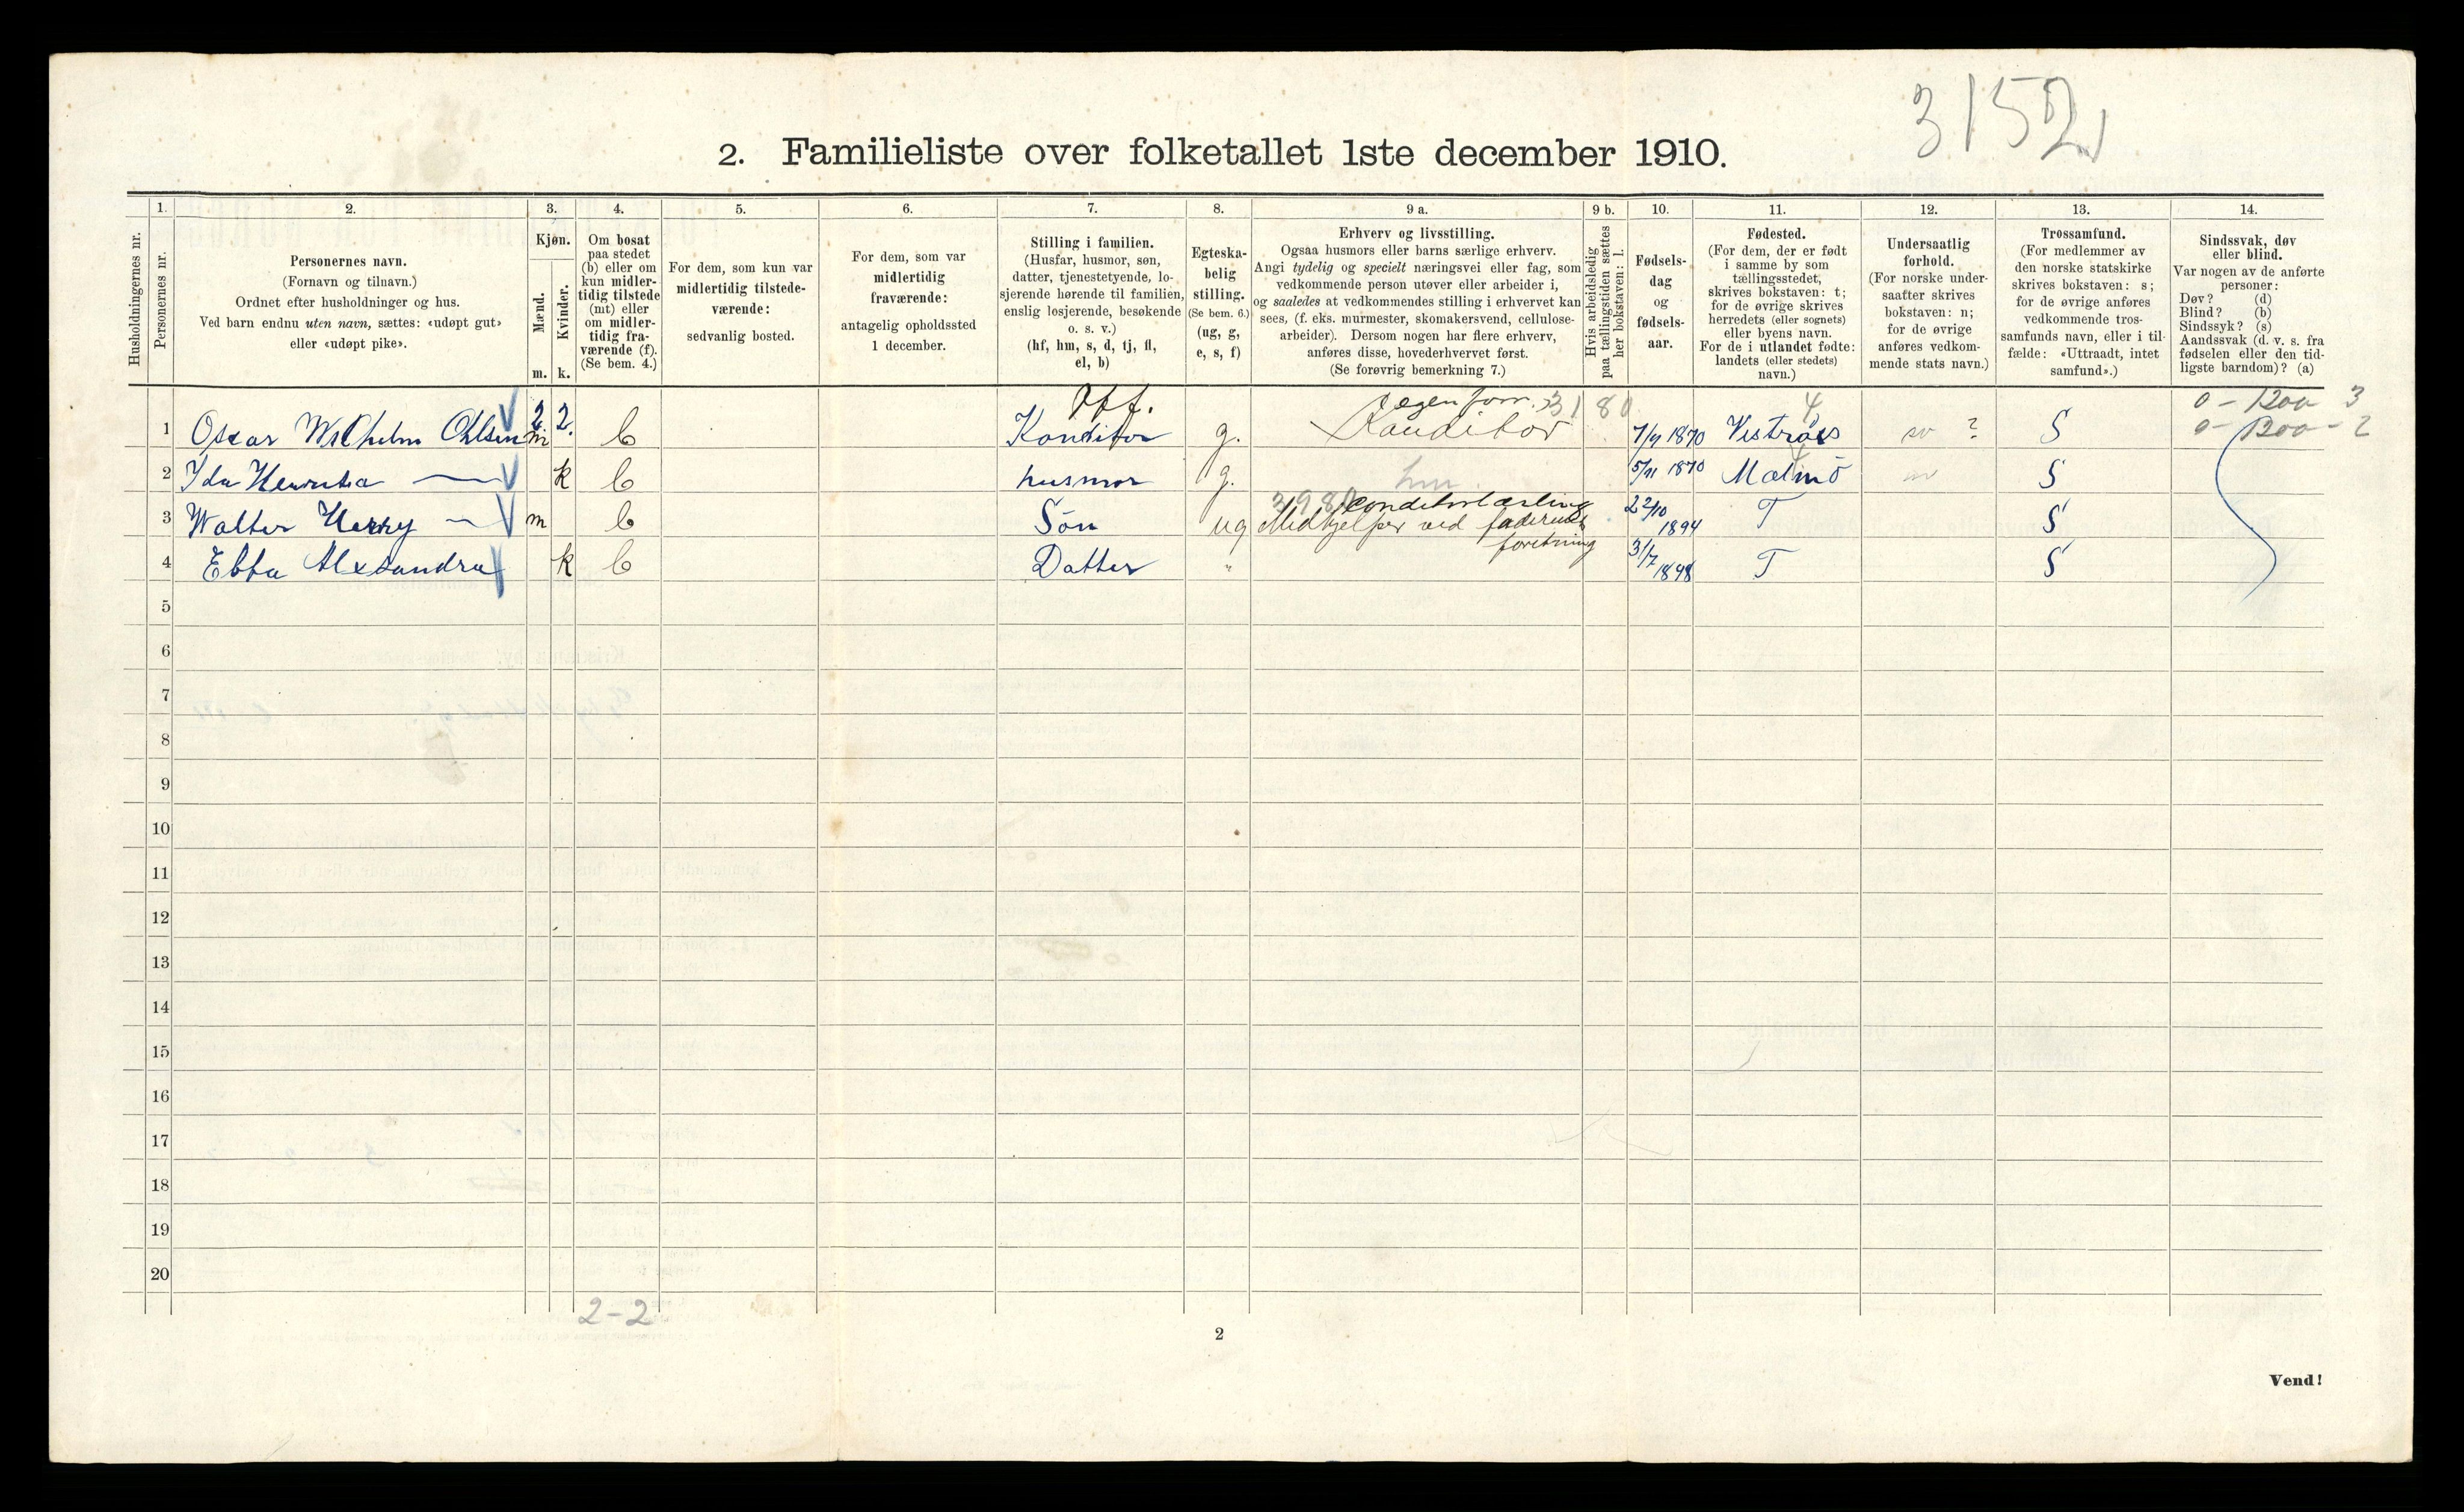 3152
2. Familieliste over folketallet 1ste december 1910.
1. 2. 3. 4. 5. 6. 7. 8. 9 a. 9 b. 10. 11. 12. 13. 14.
Husholdningernes nr.
Personernes nr.
Personernes navn.
(Fornavn og tilnavn.)
Ordnet efter husholdninger og hus.
Ved barn endnu uten navn, sættes: «udøpt gut»
eller «udøpt pike».
Kjøn.
Mænd.
m.
Kvinder.
k.
Om bosat
paa stedet
(b) eller om
kun midler-
tidig tilstede
(mt) eller
om midler-
tidig fra-
værende (f).
(Se bem. 4.)
For dem, som kun var
midlertidig tilstede-
værende:
sedvanlig bosted.
For dem, som var
midlertidig
fraværende:
antagelig opholdssted
1 december.
Stilling i familien.
(Husfar, husmor, søn,
datter, tjenestetyende, lo-
sjerende hørende til familien,
enslig losjerende, besøkende
o. s. v.)
(hf, hm, s, d, tj, fl,
el, b)
Egteska-
belig
stilling.
(Se bem. 6.)
(ug, g,
e, s, f)
Erhverv og livsstilling.
Ogsaa husmors eller barns særlige erhverv.
Angi tydelig og specielt næringsvei eller fag, som
vedkommende person utøver eller arbeider i,
og saaledes at vedkommendes stilling i erhvervet kan
sees, (f. eks. murmester, skomakersvend, cellulose-
arbeider). Dersom nogen har flere erhverv,
anføres disse, hovederhvervet først.
(Se forøvrig bemerkning 7.)
Hvis arbeidsledig
paa tællingstiden sættes
her bokstaven: l.
Fødsels-
dag
og
fødsels-
aar.
Fødested.
(For dem, der er født
i samme by som
tællingsstedet,
skrives bokstaven: t;
for de øvrige skrives
herredets (eller sognets)
eller byens navn.
For de i utlandet fødte:
landets (eller stedets)
navn.)
Undersaatlig
forhold.
(For norske under-
saatter skrives
bokstaven: n;
for de øvrige
anføres vedkom-
mende stats navn.)
Trossamfund.
(For medlemmer av
den norske statskirke
skrives bokstaven: s;
for de øvrige anføres
vedkommende tros-
samfunds navn, eller i til-
fælde: «Uttraadt, intet
samfund».)
Sindssvak, døv
eller blind.
Var nogen av de anførte
personer:
Døv? (d)
Blind? (b)
Sindssyk? (s)
Aandssvak (d. v. s. fra
fødselen eller den tid-
ligste barndom)? (a)
2. 2. egen forr. 3180 4 0 - 1200 3
1 Oscar Wilhelm Ohlsen m b Konditor g. Konditor 7/9 1870 Vestrås sv ? S 0 - 1200 - 2
2 Ida k b husmor g. hm 5/11 1870 Malmö sv S
3980 Conditorlærling
3 Walter Harry m b Sön ug Medhjelper ved faderens 22/10 1894 T S
foretning
4 Ebba Alexandra k b Datter " 31/7 1898 T S
5
6
7
8
9
10
11
12
13
14
15
16
17
18
19
20
2-2
2
Vend!